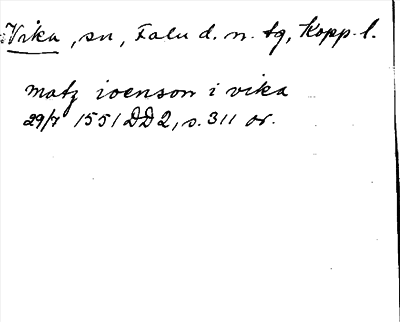 Vika, sn, Falu d. n. tg, Kopp. l.
matz ioenson i vika
29/7 1551 DD 2, s. 311 or.